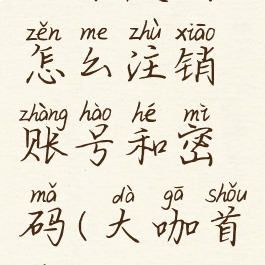 zěn me zhù xiāo
怎么注销
zhàng hào hé mì
账号和密
mǎ dà gā shǒu
码(大咖首